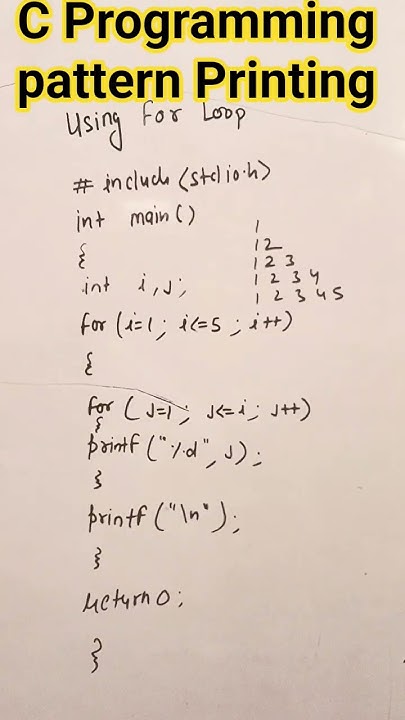 C Programming
pattern Printing
Using For Loop
# include <stdio.h>
int main()
{
int i, j;
for (i=1; i<=5; i++)
{
for (j=1; j<=i; j++)
{
printf("%d", j);
}
printf("\n");
}
return 0;
}
1
12
1 2 3
1 2 3 4
1 2 3 4 5